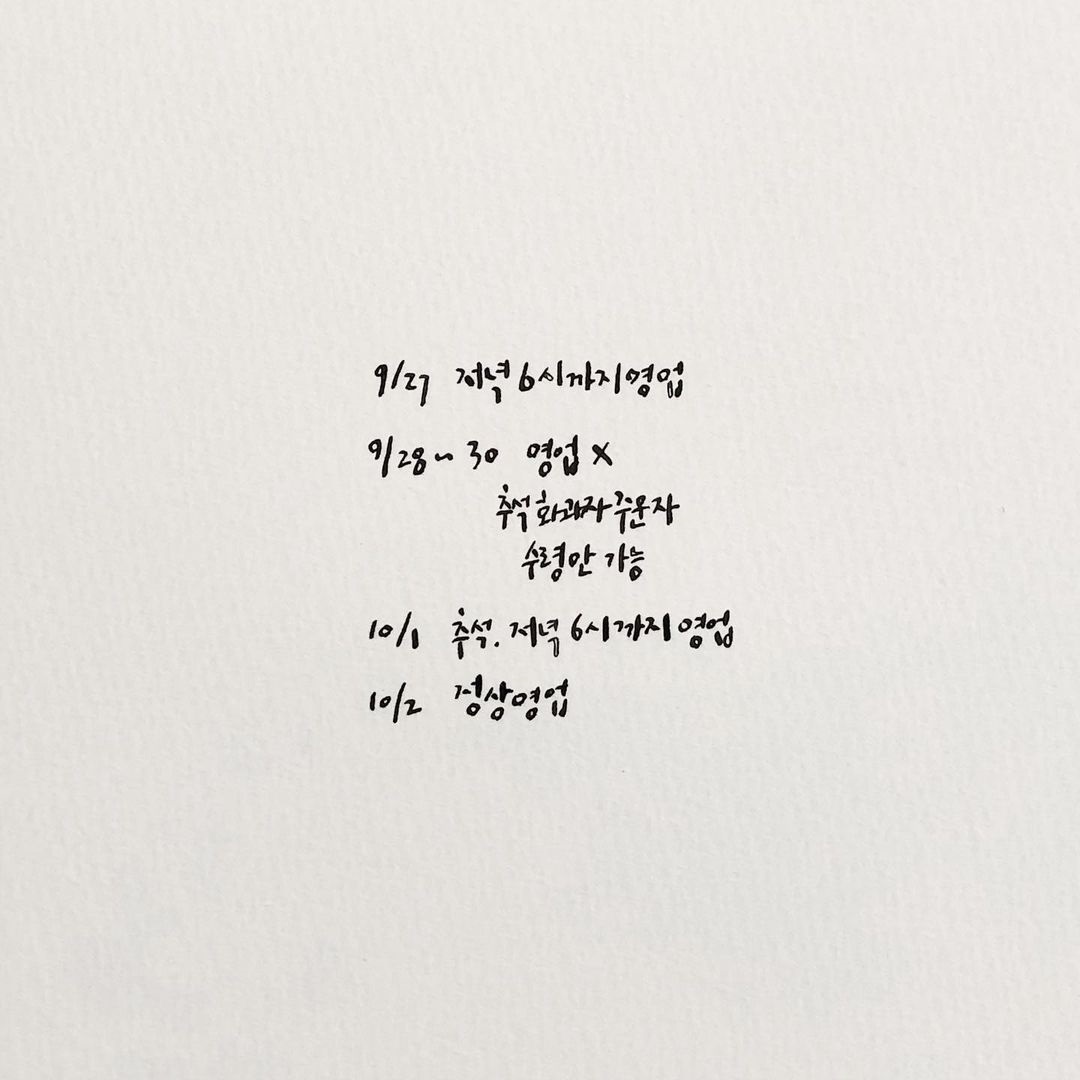 9/27 저녁 6시까지 영업
9/28~30 영업 X
추석 화과자 주문자
수령만 가능
10/1 추석. 저녁 6시까지 영업
10/2 정상영업